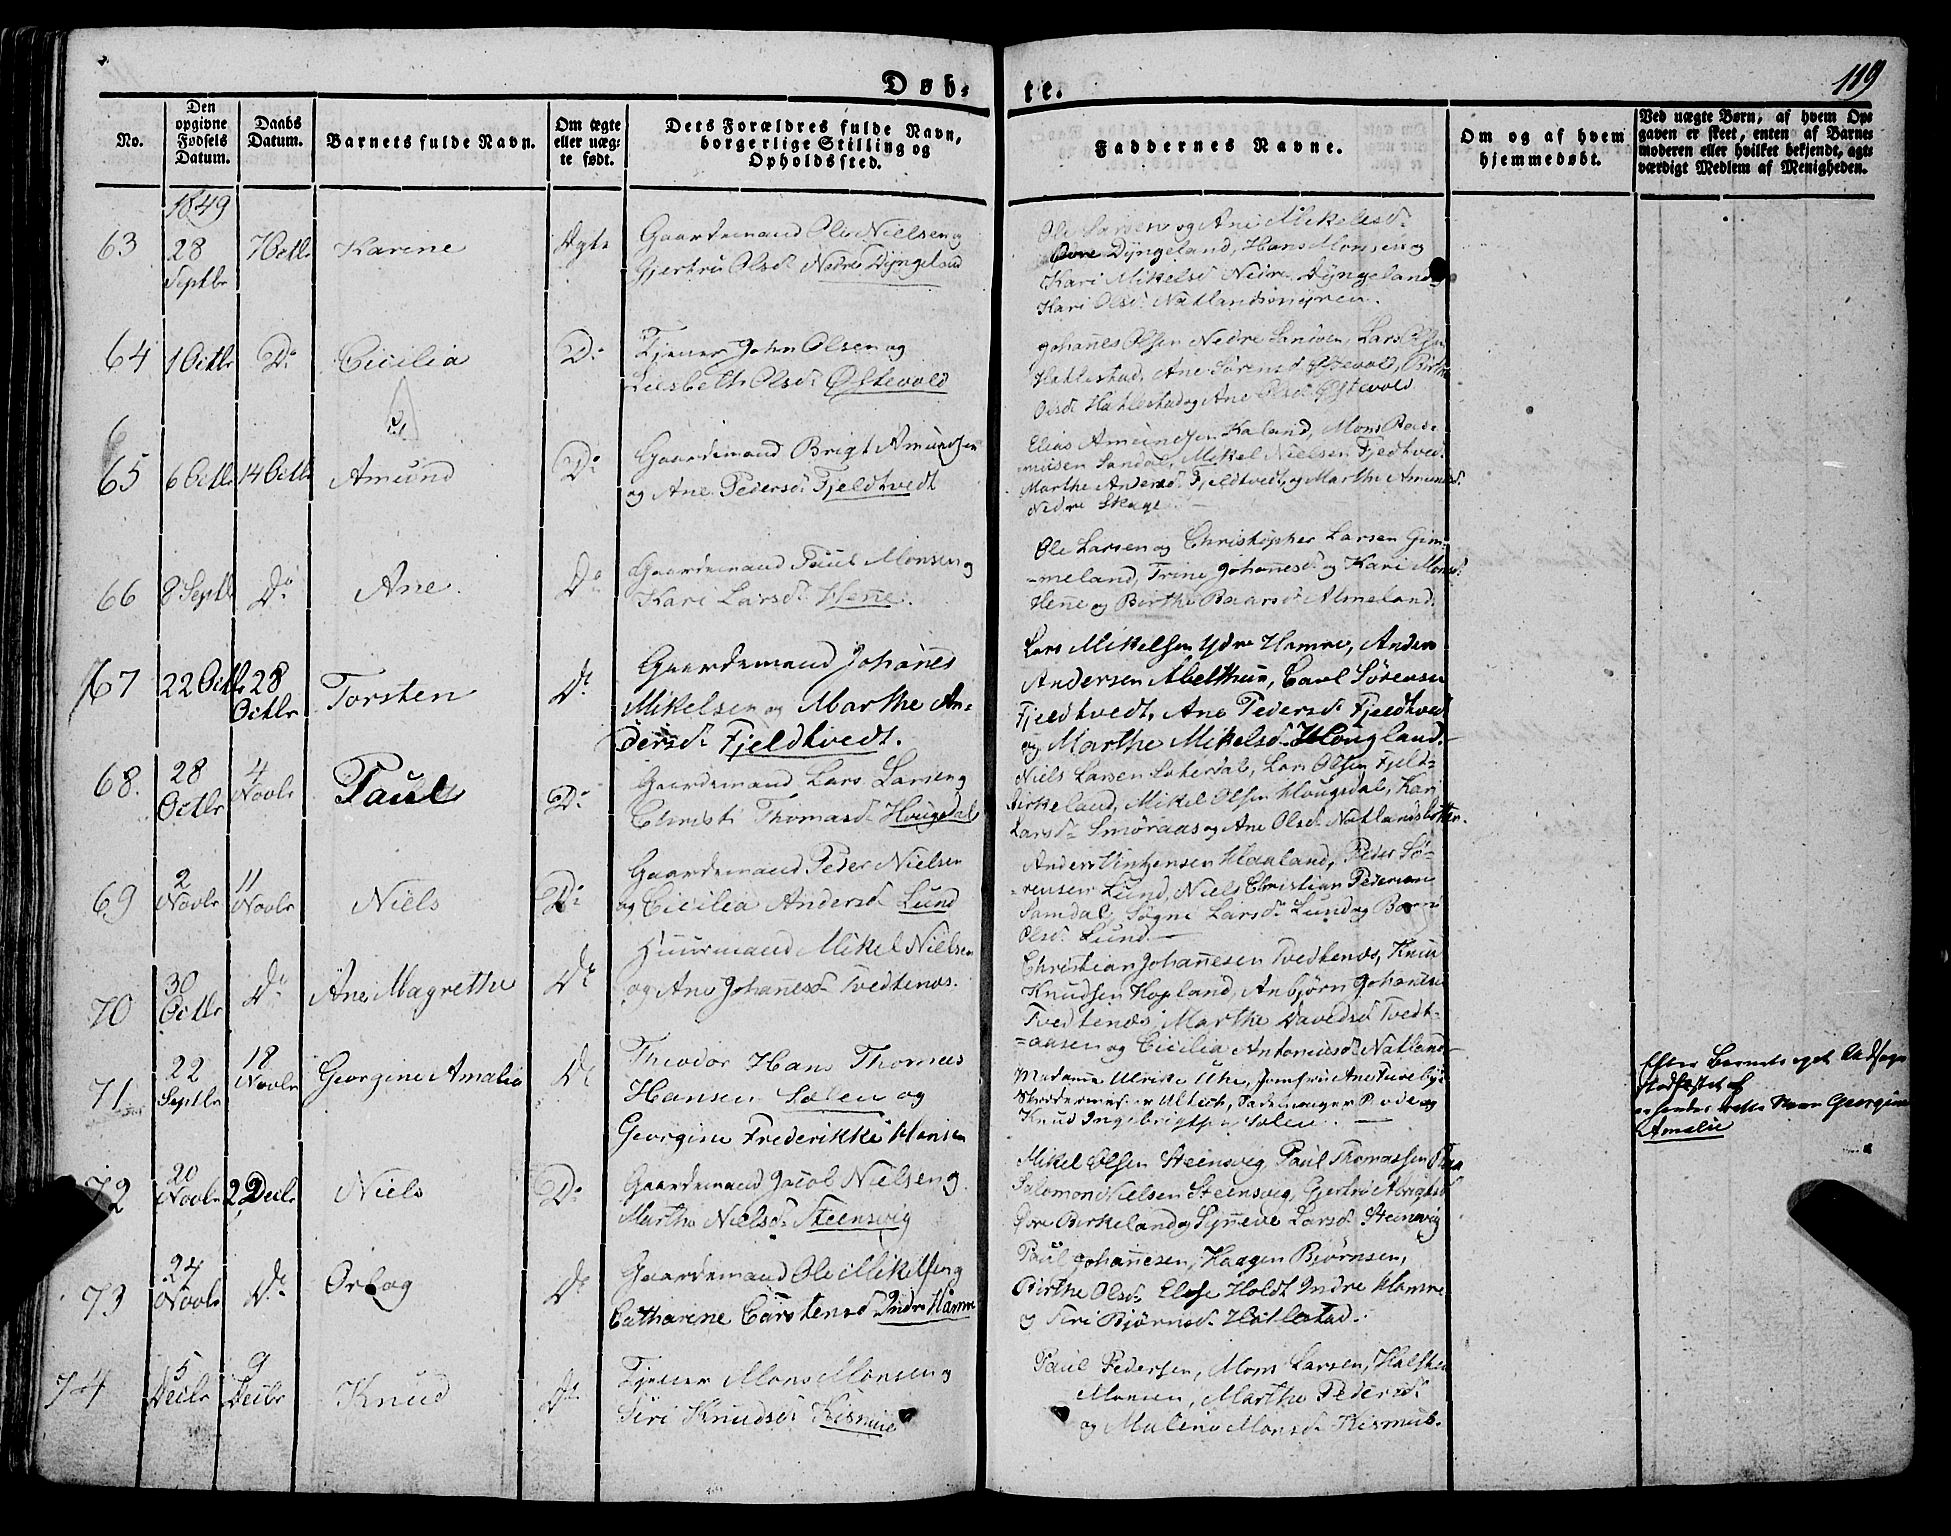 Døb-
te.
119
No.
Den opgivne Fødsels Datum.
Daabs Datum.
Barnets fulde Navn.
Om ægte eller uægte født.
Dets Forældres fulde Navn, borgerlige Stilling og Opholdssted.
Faddernes Navne.
Om og af hvem hjemmedøbt.
Ved uægte Børn, af hvem Opgaven er skeet, enten af Barnemoderen eller hvilket bekjendt, agtværdigt Medlem af Menigheden.
1849
63
28 Septbr
7 Octbr
Karine
Ægte
Gaardemand Ole Nielsen og
Gjertrü Olsd. Nedre Dyngeland
Ole Larsen og Ane Mikelsd.
Øvre Dyngeland, Hans Monsen og
Kari Mikelsd Nedre Dyngeland og
Kari Olsd. Natlandsmyren.
64
1 Octbr
Do
Cicilia
Do
Tjener John Olsen og
Liesbeth Olsd. Østevold
Johanes Olsen Nedre Sandven, Lars Olsen
Hatlestad, Ane Sørensd Østevold, Birthe
Olsd. Hatlestad og Ane Olsd. Østevold
65
6 Octbr
14 Octbr
Amund
Do
Gaardemand Brigt Amundsen
og Ane Pedersd. Fjeldtvedt
Elias Amundsen Kaland, Mons Ras-
musen Sandal, Mikel Nielsen Fjedtved.
Marthe Andersd. Fjeldtvedt, og Marthe Amundsd.
Nedre Skage
66
8 Septb
Do
Ane
Do
Gaardemand Paul Monsen og
Kari Larsd. Hene.
Ole Larsen og Christopher Larsen Gim-
-meland, Trine Johanesd. og Kari Monsd.
Hene og Birthe Baarsd. Almeland.
67
22 Octb
28 Octbr
Torsten
Do
Gaardemand Johanes
Mikelsen og Marthe An-
dersd. Fjeldtvedt.
Lars Mikelsen Ydre Hamre, Anders
Andersen Abelthun, Carl Sørensen
Fjeldtvedt, Ane Pedersd. Fjeldtvedt
og Marthe Mikelsd. Hougland.
68.
28 Octbr
4 Novbr
Paul
Do
Gaardemand Lars Larsen og
Christi Thomasd. Hougsdal
Niels Larsen Sæterdal, Lars Olsen Fjeld-
Birkeland, Mikel Olsen Hougsdal, Kari
Larsd. Smøraas og Ane Olsd. Natlandsbotten.
69
2 Novbr
11 Novbr
Niels
Do
Gaardemand Peder Nielsen
og Cicilia Andersd. Lund
Anders Haaland, Peder Sø-
-rensen Lund, Niels Christian Pedersen
Samdal, Søgni Larsd. Lund og
Olsd. Lund.
70
30 Octbr
Do
Ane Magrethe
Do
Huusmand Mikel Nielsen
og Ane Johanesd. Tvedtenæs.
Christian Johanesen Tvedtenæs, Knud
Knudsen Hopland, Anbjørn Johanesd
Tvedtenæs, Marthe Davedsd Tvedt-
-aasen og Cicilia Antoniusd Natland
71
22 Septbr
18 Novbr
Georgine Amalia
Do
Theodor Hans Thomas
Hansen Sælen og
Georgine Frederikke Hansen
Madame Ulrike Uhe, Jomfru Ane Turebye
Skreddermester Ultich, Sadelmager Rode og
Knud Ingebrigtsen Sælen.
Efter Barnets eget Udsagn
stadfæstet af
er hendes rette Navn Georgine
Amalie
72
20 Novbr
2 Decbr
Niels
Do
Gaardemand Jacob Nielsen og
Marthe Nielsd. Steensvig
Mikel Olsen Steensvig, Paul Thomassen
Salomon Nielsen Steensvig, Gjertrü
Øvre Birkeland og Syneve Larsd. Steensvig
73
24 Novbr
Do
Do
Gaardemand Ole Mikelsen og
Catharine Carstensd. Indre Hamre
Paul Johanesen, Haagen Bjørnsen,
Birthe Olsd. Else Holdt Indre Hamre
og Siri Bjørnsd. Hatlestad.
74
5 Decbr
9 Decbr
Knud
Do
Tjener Mons Monsen og
Siri Knudsd. Kismul
Paul Pedersen, Mons Larsen, Halsten
Monsen, Marthe Pedersd.
og Malene Monsd. Kismul.